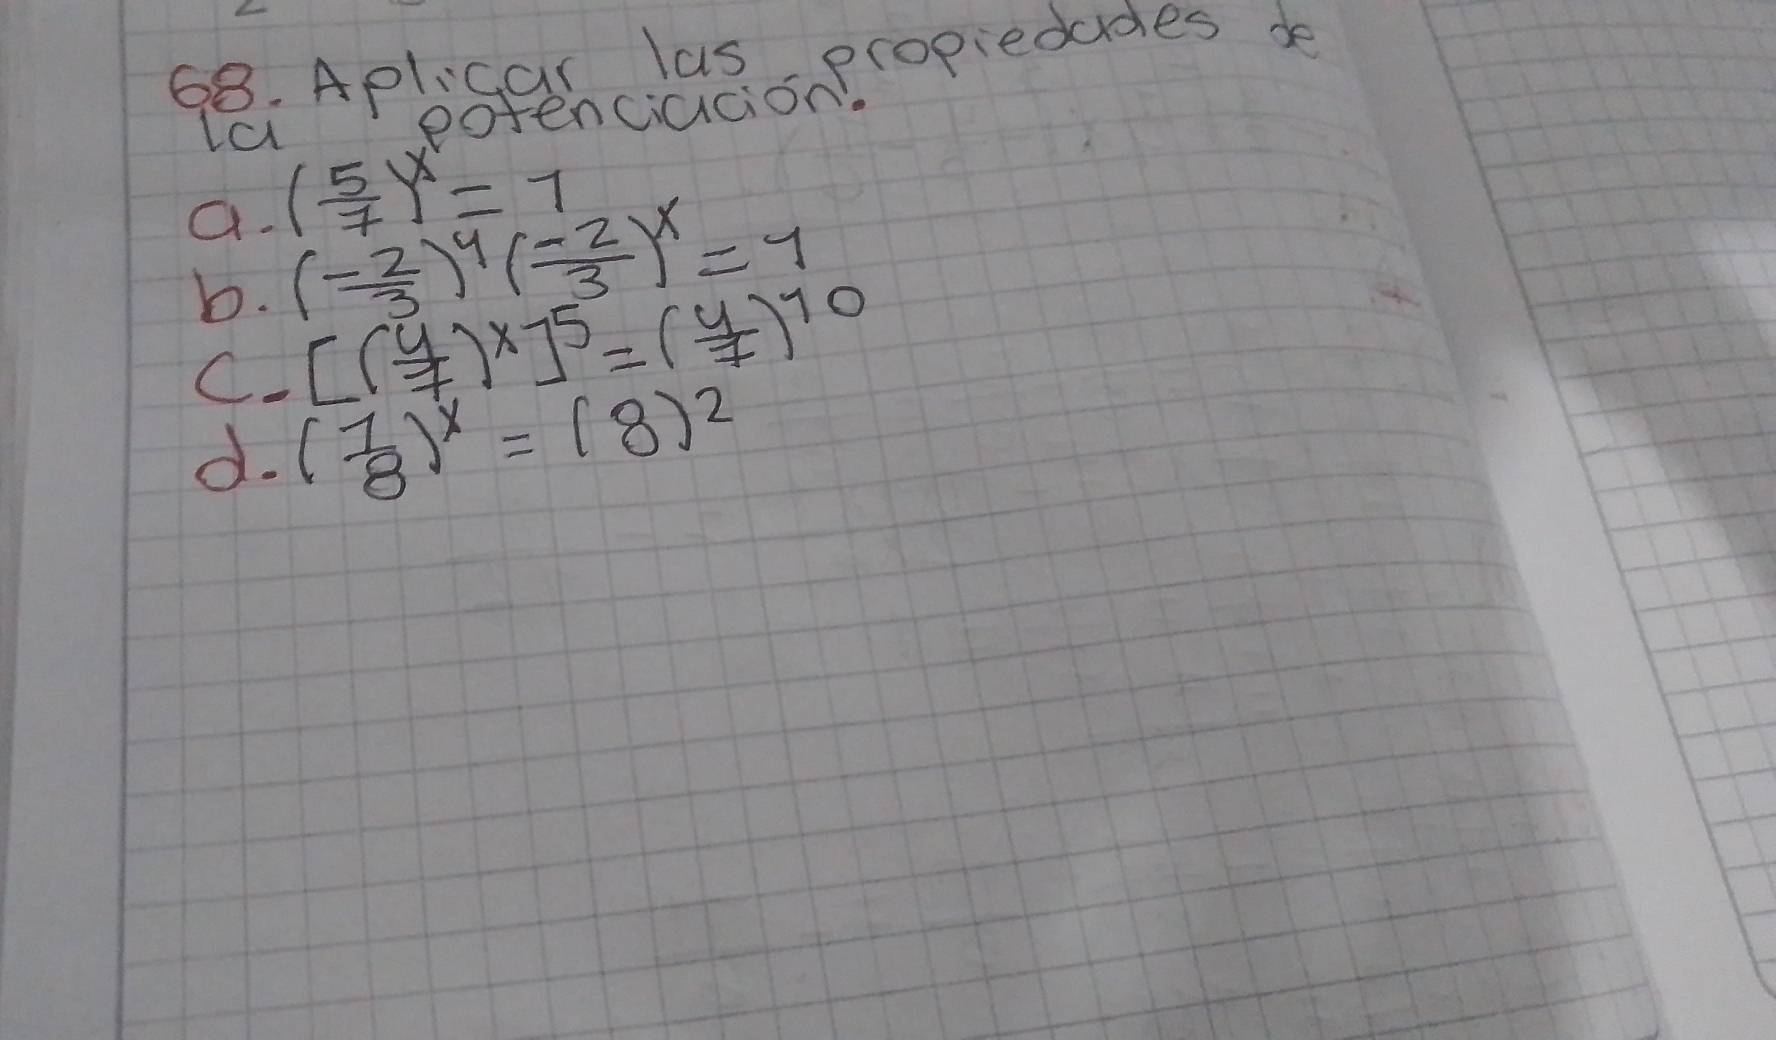 68. Aplicar las propiedades de
la potenciación.
a. (5/7)^x = 1
b. (-2/3)^4 (-2/3)^x = 1
c. [(4/7)^x]^5 = (4/7)^10
d. (1/8)^x = (8)^2